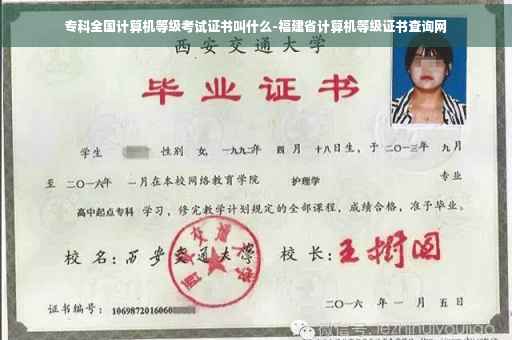 专科全国计算机等级考试证书叫什么-福建省计算机等级证书查询网
西安交通大学
毕业证书
学生 性别 女, 一九九二年 四月 十八日生, 于 二〇一三年 九月
至 二〇一六年 一月在本校网络教育学院 护理学 专业
高中起点专科 学习, 修完教学计划规定的全部课程, 成绩合格, 准予毕业。
校名: 西安交通大学 校长: 王树国
西安交通大学
证书编号: 1069872016060
二〇一六年 一月 五日
微信号: jiezhinuiyoujiao